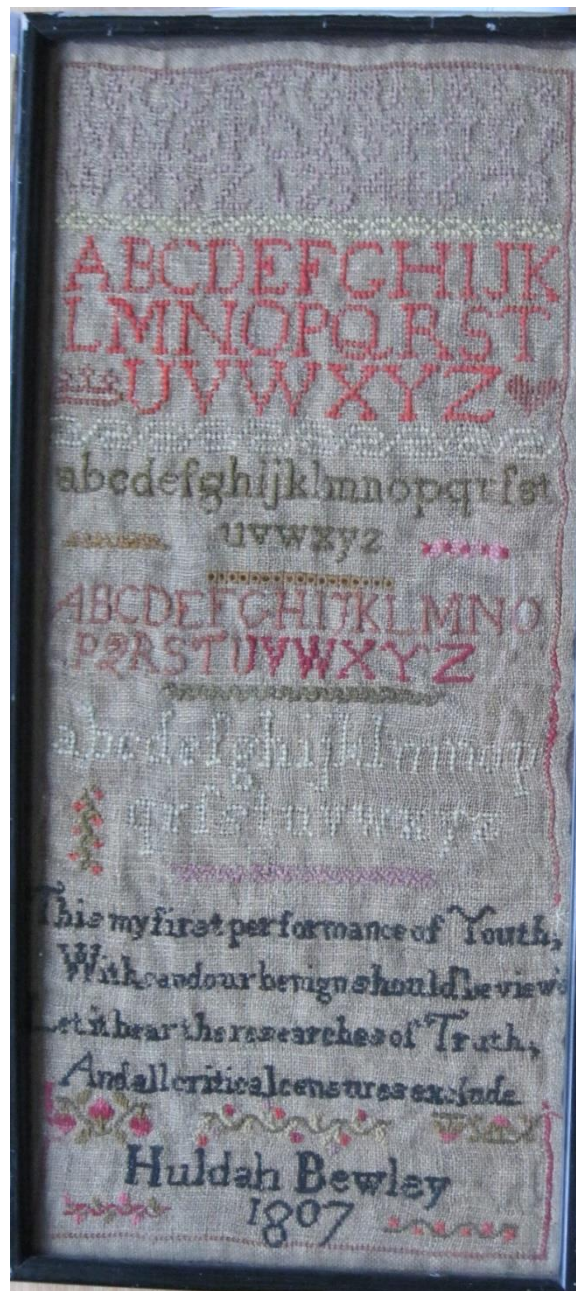 ABCDEFGHIJK
LMNOPQRST
UVWXYZ
abcdefghijklmnopqrſst
uvwxyz
ABCDEFGHIJKLMNO
PQRSTUVWXYZ
abcdefghijklmnop
qrſstuvwxyz
This my first performance of Youth,
With candour benign should be view'd
Let it bear the researches of Truth,
And all critical censures exclude
Huldah Bewley
1807